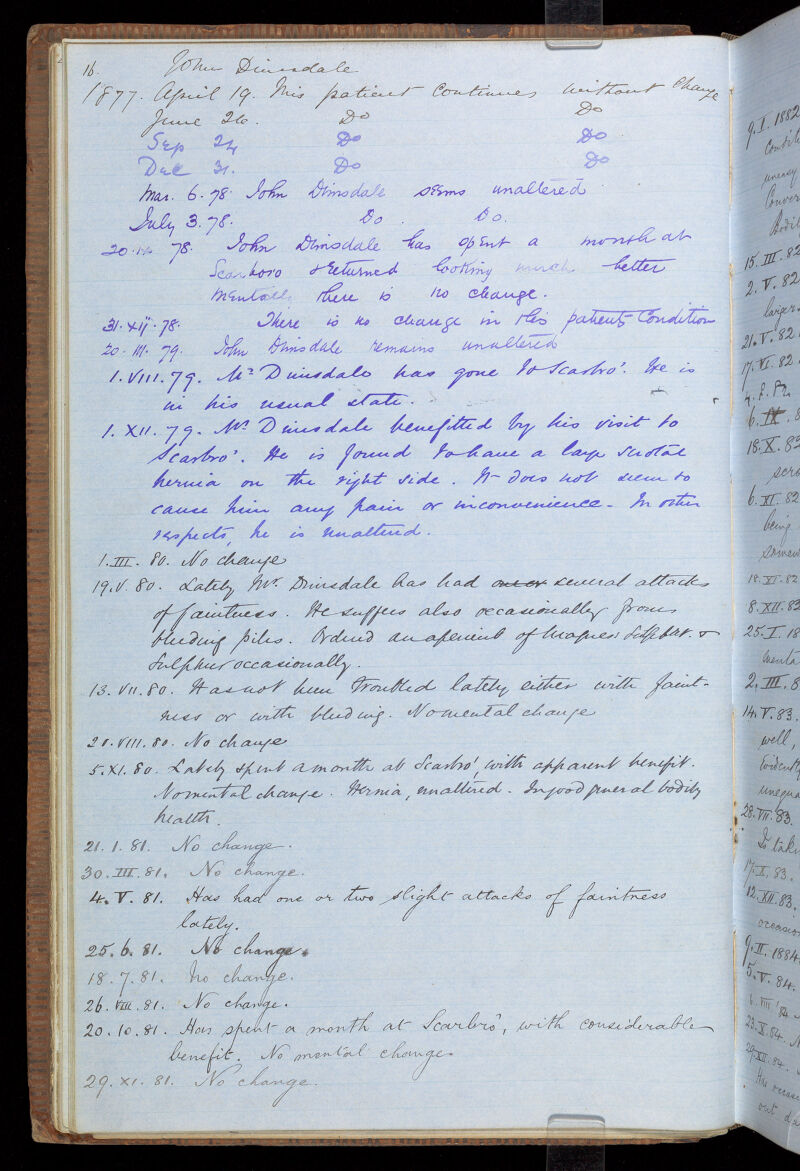 16. John Dinsdale
1877. April 19. This patient continues without change
June 26. Do Do
Sep 24 Do Do
Dec 31. Do Do
Mar. 6. 78 John Dinsdale seems unaltered
July 3. 78. Do. Do.
20. ix 78. John Dinsdale has spent a month at
Scarboro & returned looking much better
mentally there is no change.
31. xii. 78. There is no change in this patients Condition
20. III. 79. John Dinsdale remains unaltered
1. VIII. 79. Mr Dinsdale has gone to Scarbro'. He is
in his usual state.
1. XII. 79. Mr. Dinsdale benefitted by his visit to
Scarbro'. He is found to have a large scrotal
hernia on the right side. It does not seem to
cause him any pain or inconvenience. In other
respects, he is unaltered.
1. III. 80. No change
19. V. 80. Lately Mr. Dinsdale has had several attacks
of faintness. He suffers also occasionally from
bleeding piles. Ordered an aperient of Magnes Sulphat. &
Sulphur occasionally.
13. VII. 80. Has not been troubled lately either with faint-
ness or with bleeding. No mental change
20. VIII. 80. No change
5. XI. 80. Lately spent a month at Scarbro', with apparent benefit.
No mental change. Hernia, unaltered. In good general bodily
health.
21. 1. 81. No change.
30. III. 81. No change.
4. V. 81. Has had one or two slight attacks of faintness
lately.
25. 6. 81. No change.
18. 7. 81. No change.
26. VIII. 81. No change.
20. 10. 81. Has spent a month at Scarbro', with considerable
benefit. No mental change.
29. XI. 81. No change.
9. I. 1882
uneasy
15. III. 82
2. V. 82
larger
21. V. 82
17. VI. 82
18. X. 82
6. XI. 82
being
18. XI. 82
8. XII. 82
25. I. 18
2. III. 8
14. V. 83.
well,
28. VII. 83.
17. X. 83.
12. XII. 83.
9. II. 1884
5. V. 84.
23. X. 84.
29. XII. 84.
out